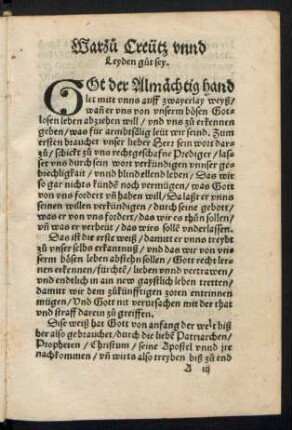 Warzů Creütz vnnd
Leyden gůt sey.
GOt der Almächtig hand
let mitt vnns auff zwayerlay weyß/
wañ er vns von vnserm bösen Gott
losen leben abziehen will / vnd vns zů erkennen
geben / was für armbsälig leüt wir seind. Zum
ersten brauchet vnser lieber Herr sein wort dar⸗
zů / schickt zů vns rechtgeschafne Prediger / las⸗
ser vns durch sein wort verkündigen vnnser ge⸗
brechligkait / vnnd blindellend leben / Das wir
so gar nichts künde noch vermügen / was Gott
von vns fordert vñ haben will / Da laßt er vnns
seinen willen verkündigen / durch seine gebott /
was er von vns fordert / das wir es thůn sollen /
vñ was er verbeut / das wirs sollē vnderlassen.
Das ist die erste weiß / damit er vnns treybt
zů vnser selbs erkantnuß / vnd das wir von vn⸗
serm bösen leben abstehn sollen / Gott recht ler⸗
nen erkennen / fürchtē / lieben vnnd vertrawen /
vnd endtlich in ain new gaystlich leben tretten /
damit wir dem zůkünfftigen zoren entrinnen
mügen / Vnd Gott nit verursachen mit der that
vnd straff darein zů greiffen.
Dise weiß hat Gott von anfang der welt biß
her also gebrauchet / durch die liebē Patriarchen /
Propheten / Christum / seine Apostel vnnd jre
nachkommen / vñ wirts also treyben biß zů end
A iij